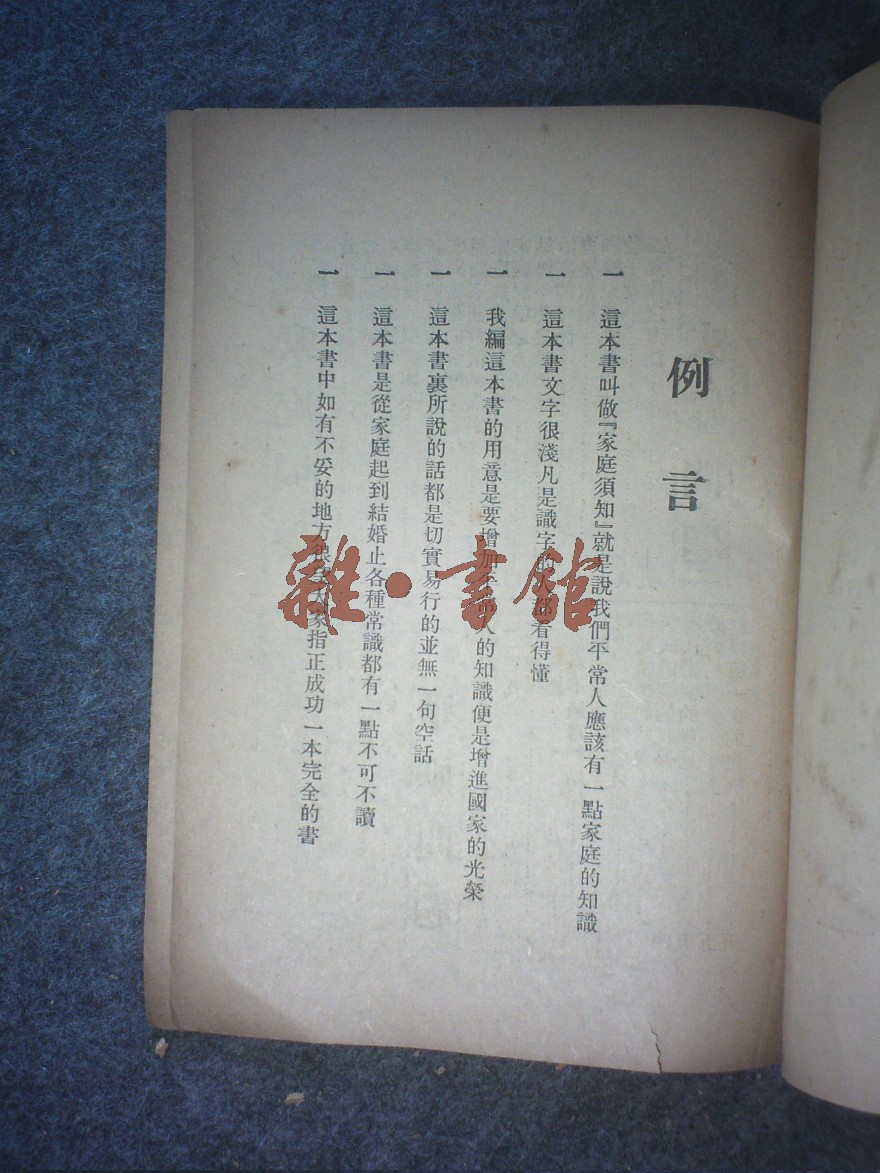 例言
一 這本書叫做『家庭須知』就是說我們平常人應該有一點家庭的知識
一 這本書文字很淺凡是識字的人都看得懂
一 我編這本書的用意是要增加平常人的知識便是增進國家的光榮
一 這本書裏所說的話都是切實易行的並無一句空話
一 這本書是從家庭起到結婚止各種常識都有一點不可不讀
一 這本書中如有不妥的地方很望大家指正成功一本完全的書
雜·書館